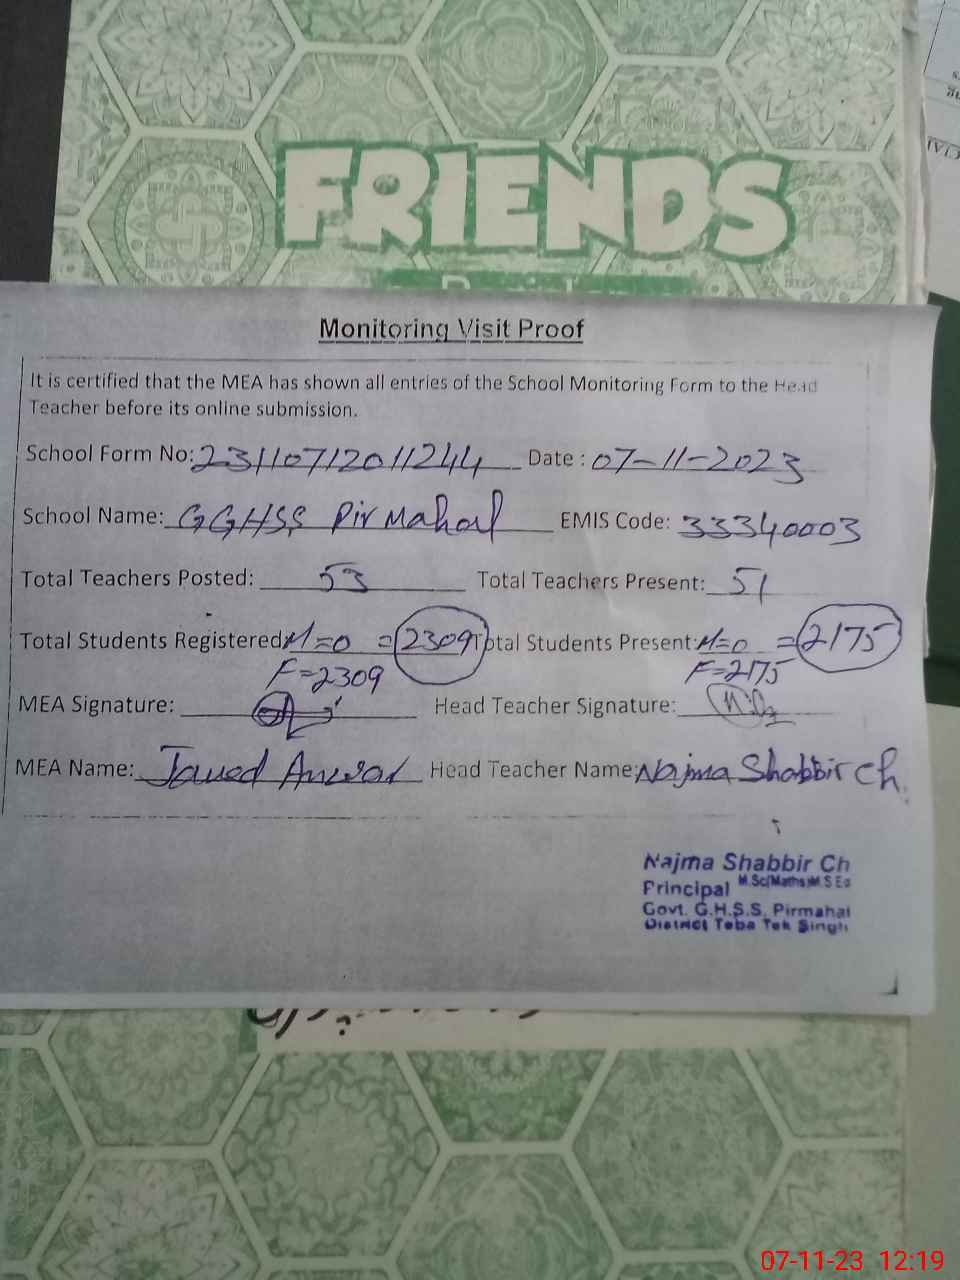 FRIENDS
Monitoring Visit Proof
It is certified that the MEA has shown all entries of the School Monitoring Form to the Head
Teacher before its online submission.
School Form No: 23110712011244 Date : 07-11-2023
School Name: GGHSS Pir Mahal EMIS Code: 33340003
Total Teachers Posted: 53 Total Teachers Present: 51
Total Students Registered: M=0 = 2309 Total Students Present: M=0 = 2175
F=2309 F=2175
MEA Signature: Head Teacher Signature:
MEA Name: Javed Anwar Head Teacher Name: Najma Shabbir Ch.
Najma Shabbir Ch
Principal M.Sc(Maths)M.S Ed
Govt. G.H.S.S, Pirmahal
District Toba Tek Singh
07-11-23 12:19